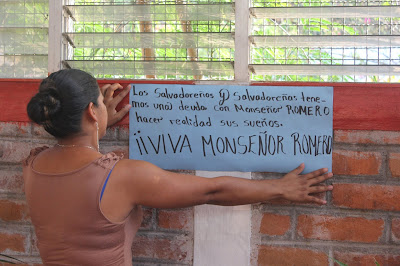 Los Salvadoreños y Salvadoreñas tene-
mos una deuda con Monseñor ROMERO
hacer realidad sus sueños.
¡¡VIVA MONSEÑOR ROMERO